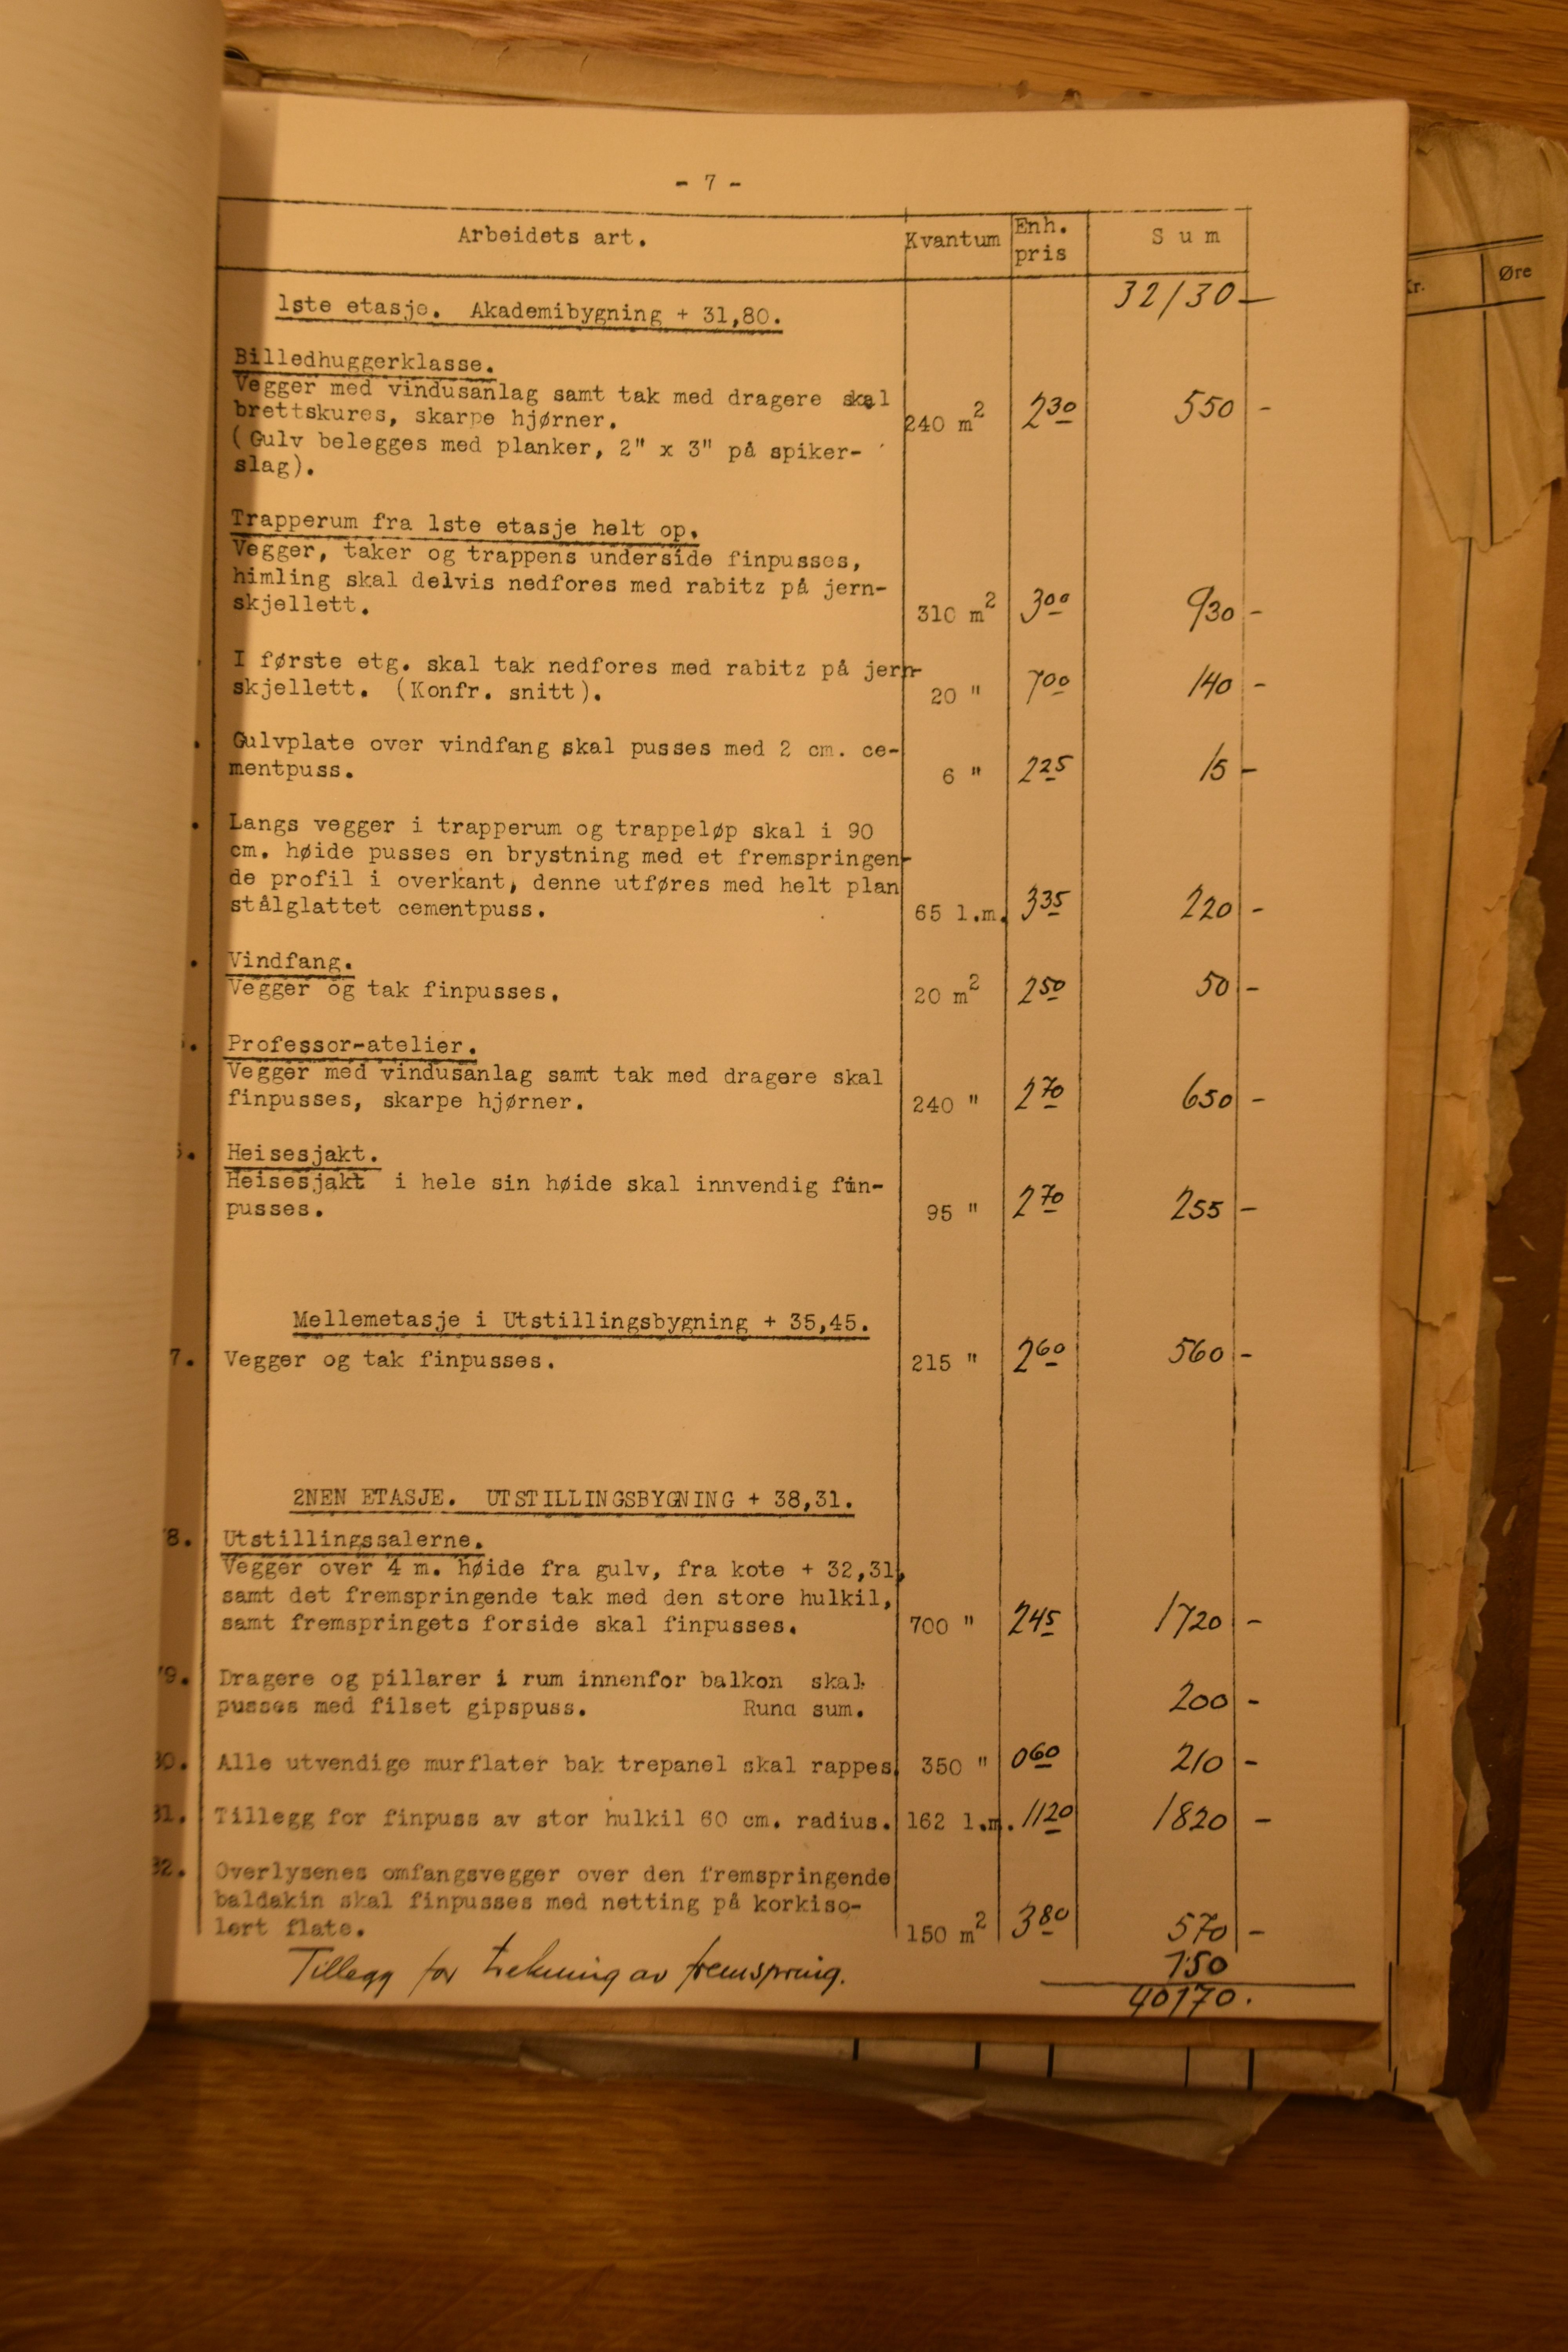 - 7 -
Arbeidets art. Kvantum Enh. pris Sum
Kr. Øre
32130 -
1ste etasje. Akademibygning + 31,80.
Billedhuggerklasse.
Vegger med vindusanlag samt tak med dragere skal
brettskures, skarpe hjørner. 240 m2 2 30 550 -
(Gulv belegges med planker, 2" x 3" på spiker-
slag).
Trapperum fra 1ste etasje helt op.
Vegger, taker og trappens underside finpusses,
himling skal delvis nedfores med rabitz på jern-
skjellett. 310 m2 3 00 930 -
I første etg. skal tak nedfores med rabitz på jern-
skjellett. (Konfr. snitt). 20 " 7 00 140 -
Gulvplate over vindfang skal pusses med 2 cm. ce-
mentpuss. 6 " 2 25 15 -
Langs vegger i trapperum og trappeløp skal i 90
cm. høide pusses en brystning med et fremspringen-
de profil i overkant, denne utføres med helt plan
stålglattet cementpuss. 65 l.m. 3 35 220 -
Vindfang.
Vegger og tak finpusses. 20 m2 2 50 50 -
Professor-atelier.
Vegger med vindusanlag samt tak med dragere skal
finpusses, skarpe hjørner. 240 " 2 70 650 -
Heisesjakt.
Heisesjakt i hele sin høide skal innvendig fin-
pusses. 95 " 2 70 255 -
Mellemetasje i Utstillingsbygning + 35,45.
7. Vegger og tak finpusses. 215 " 2 60 560 -
2NEN ETASJE. UTSTILLINGSBYGNING + 38,31.
8. Utstillingssalerne.
Vegger over 4 m. høide fra gulv, fra kote + 32,31,
samt det fremspringende tak med den store hulkil,
samt fremspringets forside skal finpusses. 700 " 2 45 1720 -
9. Dragere og pillarer i rum innenfor balkon skal
pusses med filset gipspuss. Rund sum. 200 -
80. Alle utvendige murflater bak trepanel skal rappes. 350 " 0 60 210 -
81. Tillegg for finpuss av stor hulkil 60 cm. radius. 162 l.m. 11 20 1820 -
82. Overlysenes omfangsvegger over den fremspringende
baldakin skal finpusses med netting på korkiso-
lert flate. 150 m2 3 80 570 -
Tillegg for trekning av fremspring. 150
40170.